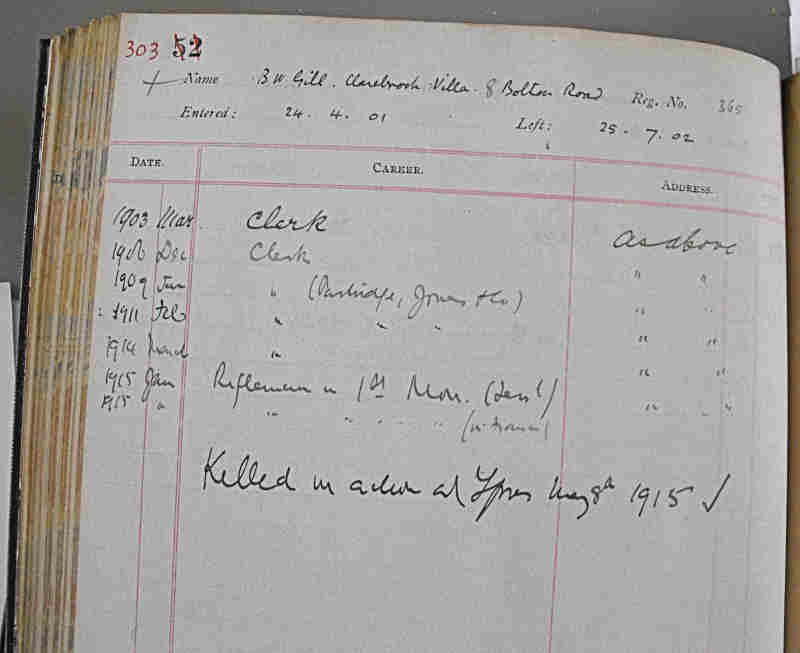 303 52
Name B W Gill. Clarebrook Villa. 8 Bolton Road Reg. No. 365
Entered: 24. 4. 01 Left: 25. 7. 02
DATE. CAREER. ADDRESS.
1903 Mar. Clerk As above
1906 Dec Clerk " "
1909 Jun " (Partridge, Jones & Co) " "
1911 Feb " " " " "
1914 March " " "
1915 Jan Rifleman in 1st Mon. (Terrl) " "
1915 " " " " " (in France)
Killed in action at Ypres May 8th 1915 ✓